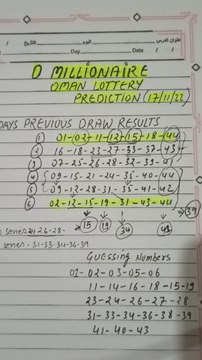 التاريخ
عنوان الدرس
Day
Date
D MILLIONAIRE
OMAN LOTTERY
PREDICTION (17/11/22)
DAYS PREVIOUS DRAW RESULTS
① 01-02-11-12-15-18-44
② 16-18-23-27-33-37-43
③ 07-25-26-28-32-39-41
④ 09-15-21-24-35-40-44
⑤ 09-12-28-31-35-41-42
⑥ 02-12-15-19-31-43-44
39
15 19 34 41
series 24 26-28-
series-31-33-34-36-39
Guessing Numbers
01-02-03-05-06
11-14-16-18-15-19
23-24-26-27-28
31-33-34-36-38-39
41-40-43